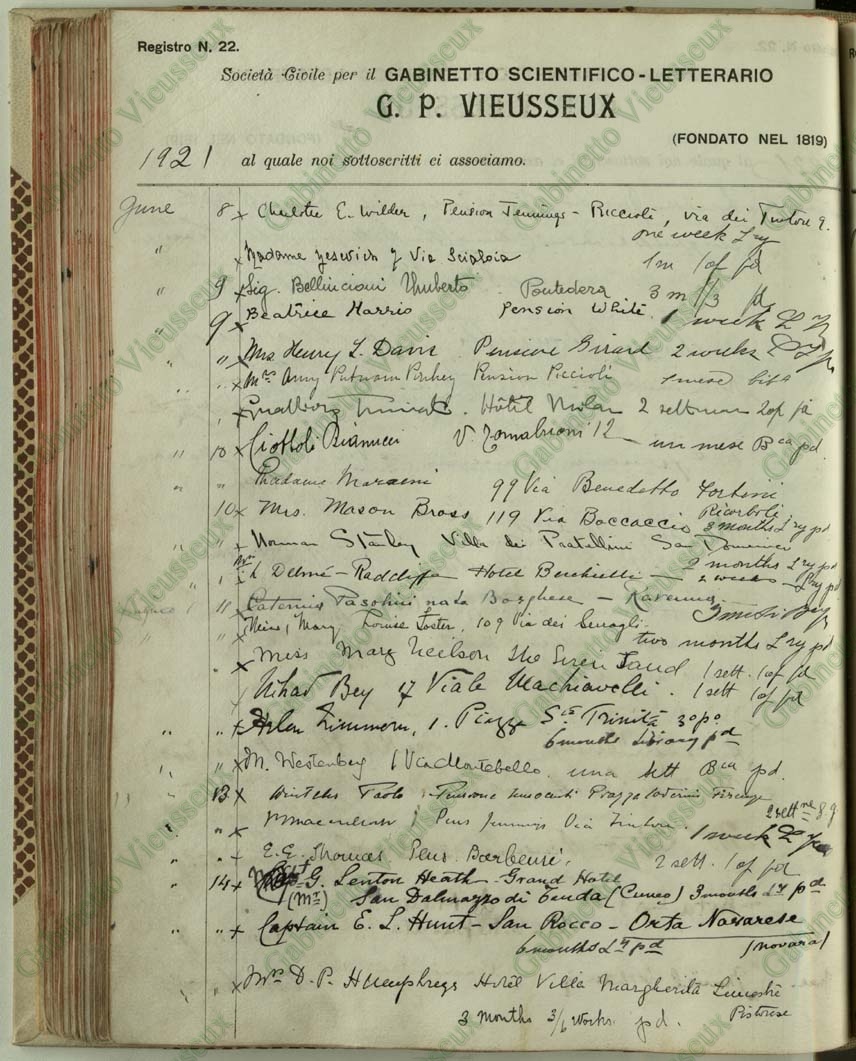 Registro N. 22.
Società Civile per il GABINETTO SCIENTIFICO-LETTERARIO
G. P. VIEUSSEUX
(FONDATO NEL 1819)
1921 al quale noi sottoscritti ci associamo.
June 8 x Charlotte E. Wilder, Pension Jennings-Riccioli, via dei Tintori 9.
one week Lry
" Madame 7 Via Scialoia 1m 1of pd
9 x Sig. Bellincioni Umberto - Pontedera 3 m 1/3 pd
" 9 x Beatrice Harris Pension White. 1 week
" " Mrs Henry L. Davis Pensione Girard 2 weeks
" " x Mrs Amy Putnam Pension Piccioli 1 mese
Hôtel Milan 2 settimane 2of pd
" 10 x Bianucci V. Tornabuoni 12 - un mese Bca pd.
" " Madame Maraini 99 Via Benedetto Fortini
Ricorboli
10 x Mrs. Mason Bross 119 Via Boccaccio 3 months Lry pd
" " x Norman Stanley Villa dei Pratellini San Domenico
2 months Lry pd
Delmé-Radcliffe Hotel Berchielli - 2 weeks - Lry pd
11 x Pasolini nata Borghese - Ravenna
" Miss Mary Louise Foster, 109 Via dei Serragli.
two months Lry pd
x Miss Mary Neilson The Siren Land 1 sett. 1of pd
Nihad Bey 17 Viale Machiavelli. 1 sett 1of pd
" " x Helen Zimmern, 1. Piazza Sta Trinità 3o po
6 months library pd
" " x M. Westenberg 1 Via Montebello. una sett Bca pd.
" 13 x Paolo Pensione Piazza Firenze
2 settne
" " x Pens Jennings Via Tintori. 1 week
" " x E. G. Thomas Pens Barbensi. 2 sett. 1 of pd
" 14 x G. Lenton Heath - Grand Hotel
(Mr) San Dalmazzo di Tenda (Cuneo) 3 months Ly pd
" " x Captain E. L. Hunt - San Rocco - Orta Novarese
6 months Ly pd (Novara)
" x Mrs D. P. Humphreys Hotel Villa Margherita Limestre
3 months 3/6 works. pd. Pistoiese